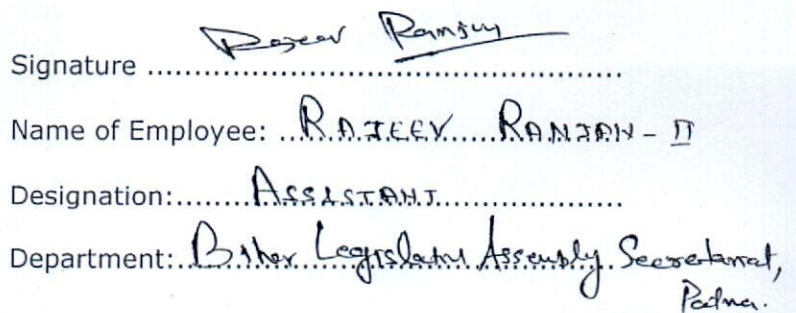 Signature .................................................. Rajeev Ranjan
Name of Employee: RAJEEV RANJAN - II
Designation: ASSISTANT
Department: Bihar Legislative Assembly Secretariat,
Patna.